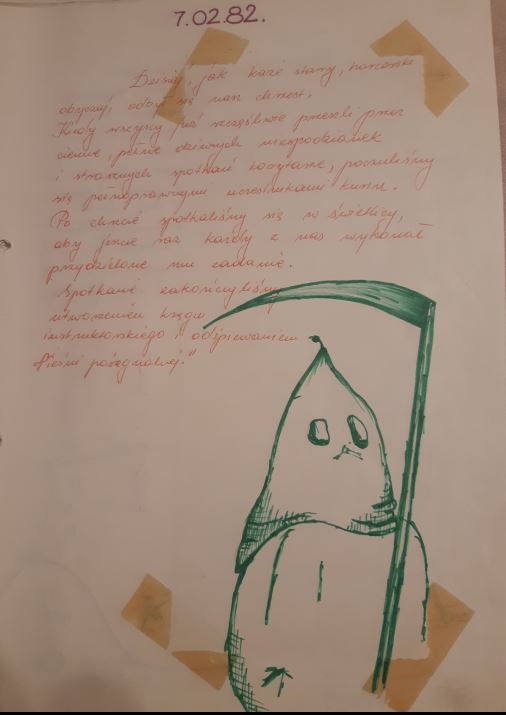 7.02.82.
Dzisiaj, jak każe stary, harcerski
obyczaj, odbył się nasz chrzest.
Kiedy wszyscy już szczęśliwie przeszli przez
ciemne, pełne dziwnych niespodzianek
i strasznych spotkań korytarze, poczuliśmy
się pełnoprawnymi uczestnikami kursu.
Po chrzcie spotkaliśmy się w świetlicy,
aby jeszcze raz każdy z nas wykonał
przydzielone mu zadanie.
Spotkanie zakończyliśmy
utworzeniem kręgu
instruktorskiego i odśpiewaniem
"Pieśni pożegnalnej."